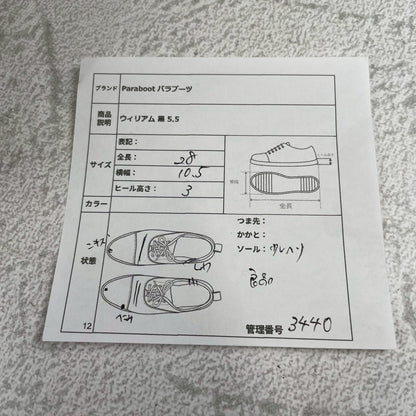 ブランド Paraboot パラブーツ
商品説明 ウィリアム 黒 5.5
サイズ
表記：
全長： 28
横幅： 10.5
ヒール高さ： 3
ヒール高さ
横幅
全長
カラー
状態
キズ
しわ
つま先：
かかと：
ソール：
良品
12
管理番号 3440